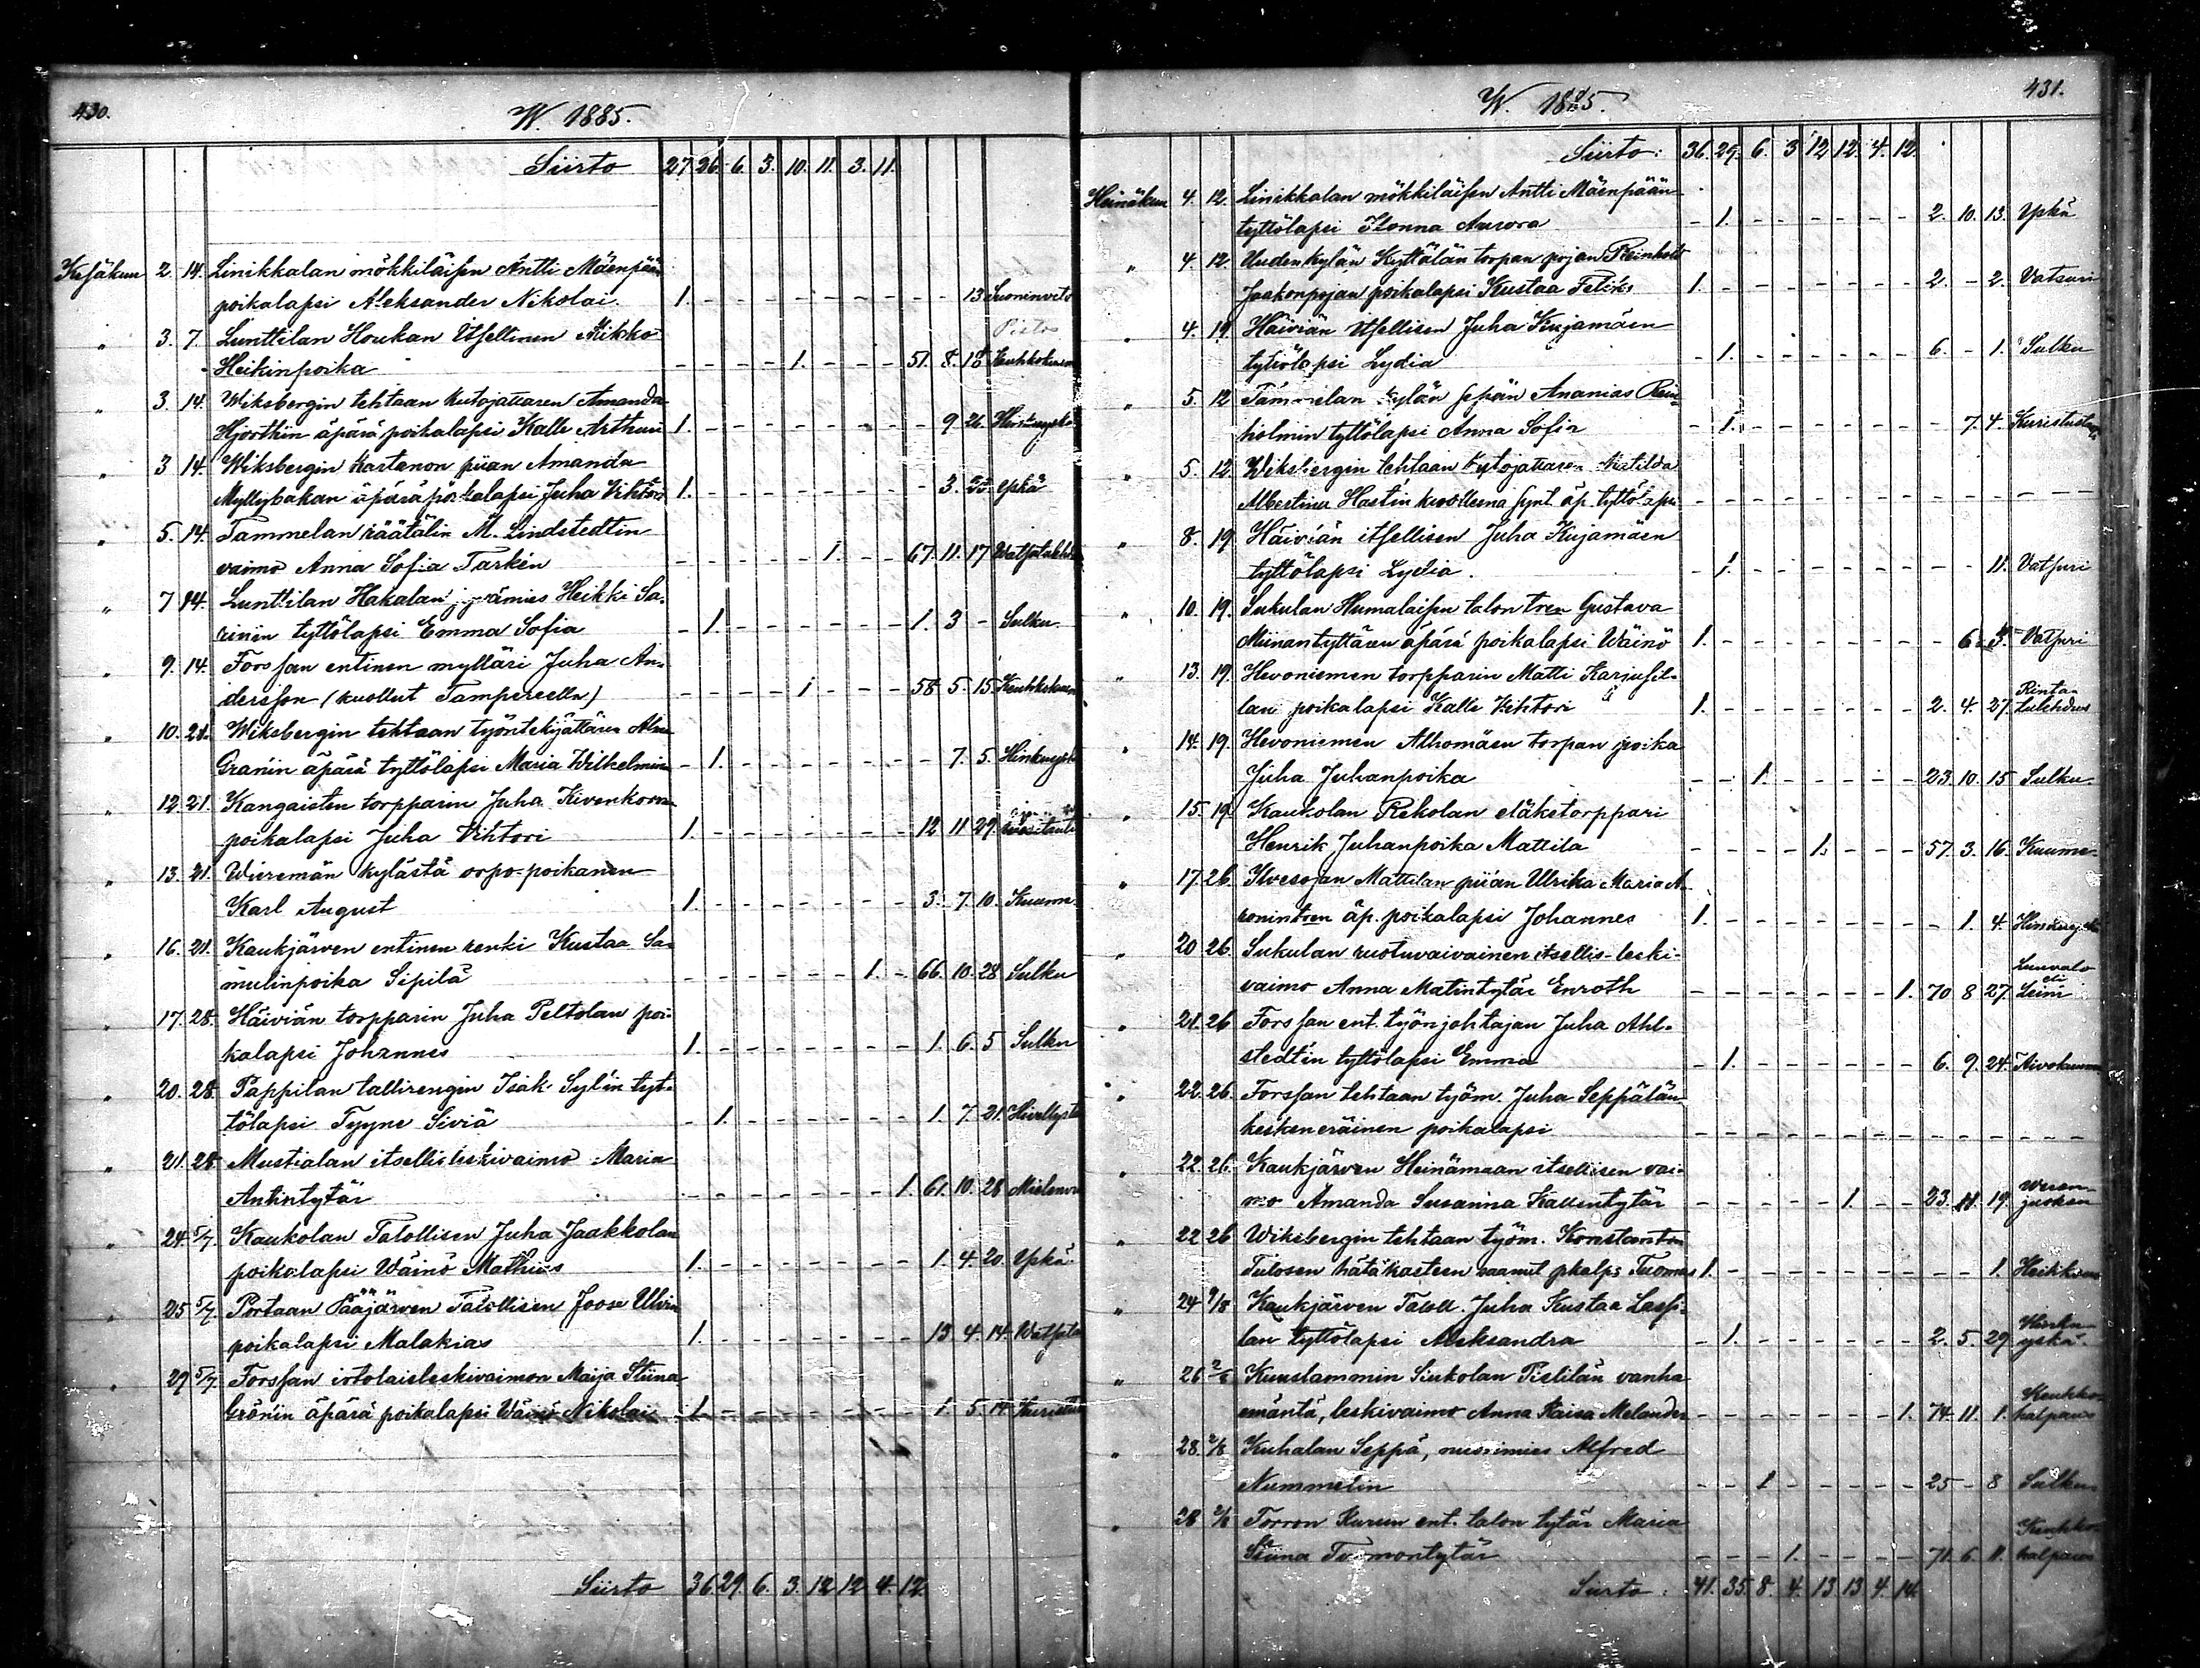 430.
W. 1885.
Siirto 27. 26. 6. 3. 10. 11. 3. 11.
Kesäkuu 2. 14. Linikkalan mökkiläisen Antti Mäenpään
poikalapsi Aleksander Nikolai. 1. - - - - - - - - - 13
" 3. 7. Lunttilan Houkan Itsellinen Mikko
Heikinpoika - - - - 1. - - - 51. 8. 18
" 3. 14. Wiksbergin tehtaan kutojattaren Amanda
Hjorthin äpärä poikalapsi Kalle Arthuri 1. - - - - - - - - 9 26.
" 3 14. Wiksbergin Kartanon piian Amanda
Myllybakan äpärä poikalapsi Juha Vihtori 1. - - - - - - - - 3. 23 Yskä
" 5. 14. Tammelan räätälin M. Lindstedtin
vaimo Anna Sofia Tarkén - - - - - 1. - - 67. 11. 17
" 7 14. Lunttilan Hakalan Heikki Sa-
rinin tyttölapsi Emma Sofia - 1. - - - - - - 1. 3 - Sulku
" 9. 14. Forssan entinen mylläri Juha An-
dersson (kuollut Tampereella) - - - - 1 - - - 58. 5. 15.
" 10. 21. Wiksbergin tehtaan työntekijättären
Granin äpärä tyttölapsi Maria Wilhelmina - 1. - - - - - - - 7. 5.
" 12. 21. Kangaisten torpparin Juha Kivenkorvan
poikalapsi Juha Vihtori 1. - - - - - - - 12 11 29.
" 13. 21. Wieremän kylästä orpo-poikanen
Karl August 1. - - - - - - - 3. 7. 10. Kuume
" 16. 21. Kaukjärven entinen renki Kustaa Sa-
mulinpoika Sipilä - - - - - - 1. - 66. 10. 28 Sulku
" 17. 28. Häiviän torpparin Juha Peltolan poi-
kalapsi Johannes 1. - - - - - - - 1. 6. 5 Sulku
" 20. 28. Pappilan tallirengin Isak Sylin tyt-
tölapsi Tyyne Siviä - 1. - - - - - - 1. 7. 21.
" 21. 28. Mustialan itsellisleskivaimo Maria
Antintytär - - - - - - - 1. 61. 10. 28
" 24. 5/7. Kaukolan Talollisen Juha Jaakkolan
poikalapsi Wäinö Mathias 1. - - - - - - - 1. 4. 20. Yskä
" 25 5/7. Portaan Pääjärven Talollisen Joose Ulvin
poikalapsi Malakias 1. - - - - - - - 13 4. 14.
" 29 5/7. Forssan irtolaisleskivaimon Maija Stiina
Grönin äpärä poikalapsi Wäinö Nikolai 1. - - - - - - - 1. 5. 14.
Siirto 36 29. 6. 3. 12 12. 4. 12.
431.
W. 1885.
Siirto: 36. 29. 6. 3 12 12. 4. 12.
Heinäkuu 4. 12. Linikkalan mökkiläisen Antti Mäenpään
tyttölapsi Ilonna Aurora - 1. - - - - - - 2. 10. 13. Yskä
" 4. 12. Uudenkylän Kyttälän torpan pojan Reinhold
Jaakonpojan poikalapsi Kustaa Feliks 1. - - - - - - - 2. - 2. Vatsuri
" 4. 19. Häiviän Itsellisen Juha Kujamäen
tyttölapsi Lydia - 1. - - - - - - 6. - 1. Sulku
" 5. 12 Tammelan kylän sepän Ananias Rein-
holmin tyttölapsi Anna Sofia - 1. - - - - - - - 7. 4.
" 5. 12. Wiksbergin tehtaan kutojattaren Matilda
Albertina Hastin kuolleena synt. äp. tyttölapsi - - - - - - - - - - -
" 8. 19 Häiviän itsellisen Juha Kujamäen
tyttölapsi Lydia. - 1. - - - - - - - - 11. Vatsuri
" 10. 19. Sukulan Humalaisen talon tren Gustava
Miinantyttären äpärä poikalapsi Wäinö 1. - - - - - - - - 6 3. Vatsuri
" 13. 19. Hevoniemen torpparin Matti Karjusil-
lan poikalapsi Kalle Vihtori 1. - - - - - - - 2. 4. 27.
" 14. 19. Hevoniemen Alhomäen torpan poika
Juha Juhanpoika - - 1. - - - - - 23. 10. 15 Sulku
" 15. 19. Kaukolan Rekolan eläketorppari
Henrik Juhanpoika Mattila - - - - 1. - - - 57. 3. 16. Kuume
" 17. 26. Ylvesojan Mattilan piian Ulrika Maria A-
ronintren äp. poikalapsi Johannes 1. - - - - - - - - 1. 4.
" 20 26. Sukulan ruotuvaivainen itsellis-leski-
vaimo Anna Matintytär Enroth - - - - - - - 1. 70 8 27.
" 21. 26 Forssan ent. työnjohtajan Juha Ahl-
stedtin tyttölapsi Emma - 1. - - - - - - 6. 9. 24.
" 22. 26. Forssan tehtaan työm. Juha Seppälän
keskeneräinen poikalapsi - - - - - - - - - - -
" 22 26. Kaukjärven Heinämaan itsellisen vai-
mo Amanda Susanna Kallentytär - - - - - 1. - - 23. 11. 19. Weren-
juoksu
" 22 26 Wiksbergin tehtaan työm. Konstantin
Tulosen hätäkasteen saanut pkalps Tuomas 1. - - - - - - - - - 1.
" 24 2/8 Kaukjärven Taloll. Juha Kustaa Lassi-
lan tyttölapsi Aleksandra - 1. - - - - - - 2. 5. 29 Hinku-
yskä
" 26 2/8 Kuuslammin Siukolan Pislilän vanha
emäntä, leskivaimo Anna Kaisa Melander - - - - - - - 1. 74. 11. 1.
" 28. 2/8 Kuhalan Seppä, nuorimies Alfred
Nummelin - - 1 - - - - - 25 - 8 Sulku
" 28 2/8 Torron Kurun ent. talon tytär Maria
Stiina Tuomontytär - - - 1. - - - - 71. 6. 11.
Siirto: 41. 35. 8. 4. 13. 13. 4. 14.